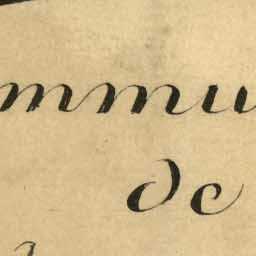 mmu
de